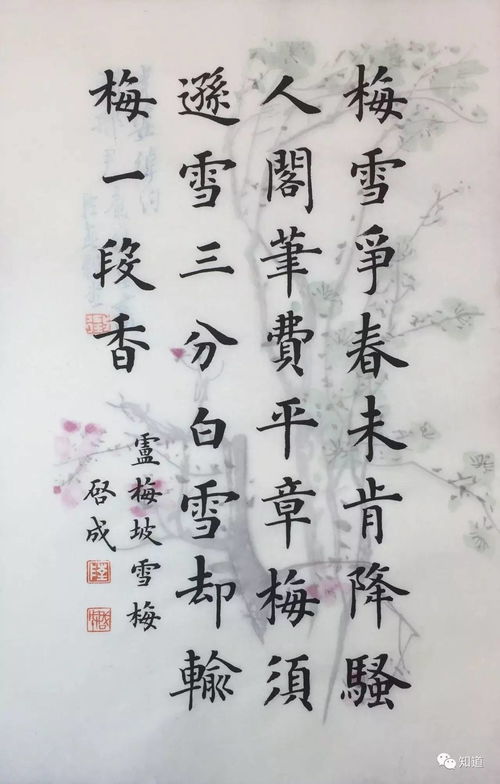 梅雪爭春未肯降騷
人閣筆費平章梅須
遜雪三分白雪却輸
梅一段香
盧梅坡雪梅
啓成
知道